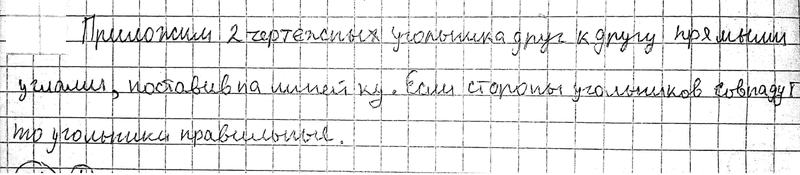 Приложим 2 чертежных угольника друг к другу прямыми
углами, поставив на линейку. Если стороны угольников совпадут
то угольники правильные.